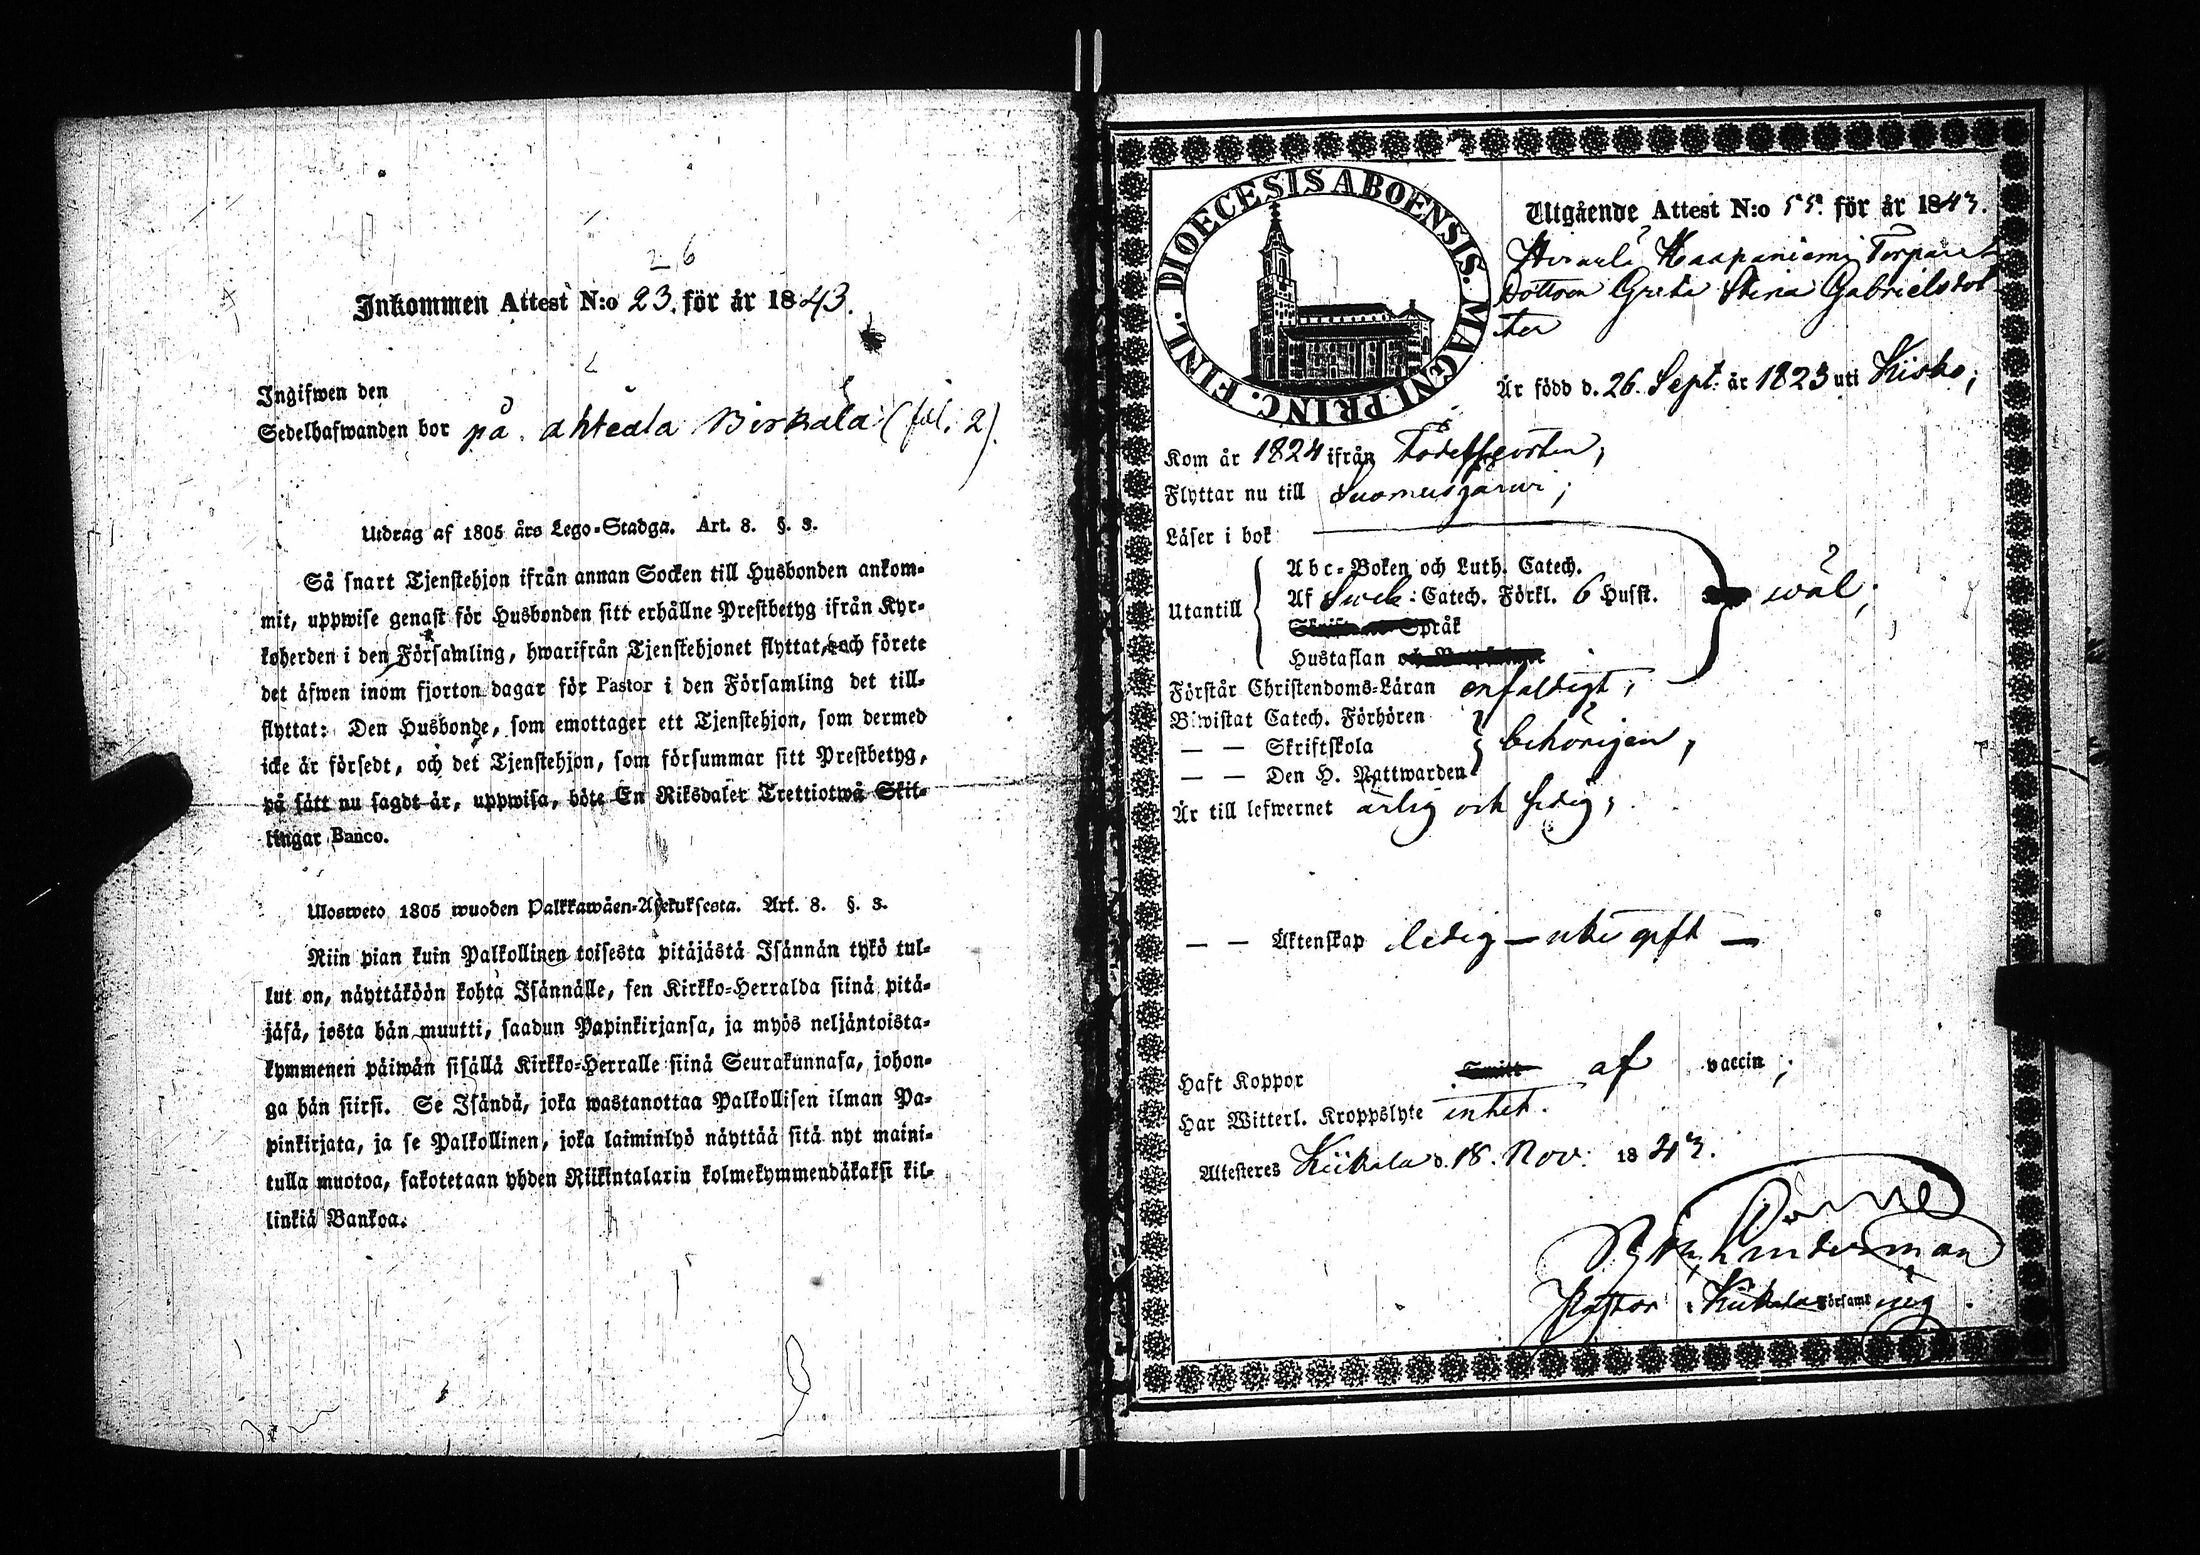 26
Inkommen Attest N:o 23. för år 1843.
Ingifwen den
Sedelhafwanden bor på Ahteala Birkala (fol. 2).
Utdrag af 1805 års Lego-Stadga. Art. 8. §. 3.
Så snart Tjenstehjon ifrån annan Socken till Husbonden ankom-
mit, uppwise genast för Husbonden sitt erhållne Prestbetyg ifrån Kyr-
koherden i den Församling, hwarifrån Tjenstehjonet flyttat, och förete
det äfwen inom fjorton dagar för Pastor i den Församling det till-
flyttat: Den Husbonde, som emottager ett Tjenstehjon, som dermed
icke är försedt, och det Tjenstehjon, som försummar sitt Prestbetyg,
på sätt nu sagdt är, uppwisa, böte En Riksdaler Trettiotwå Skil-
lingar Banco.
Ulosweto 1805 wuoden Palkkawäen-Asetuksesta. Art. 8. §. 3.
Niin pian kuin Palkollinen toisesta pitäjästä Isännän tykö tul-
lut on, näyttäköön kohta Isännälle, sen Kirkko-Herralda siinä pitä-
jäsä, josta hän muutti, saadun Papinkirjansa, ja myös neljäntoista-
kymmenen päiwän sisällä Kirkko-Herralle siinä Seurakunnasa, johon-
ga hän siirsi. Se Isändä, joka wastanottaa Palkollisen ilman Pa-
pinkirjata, ja se Palkollinen, joka laiminlyö näyttää sitä nyt maini-
tulla muotoa, sakotetaan yhden Riikintalarin kolmekymmendäkaksi kil-
linkiä Bankoa.
DIOECESIS ABOENSIS. MAGNI PRINC. FINL.
Utgående Attest N:o 55. för år 1843.
Haapaniemi Torpare
Dottern Greta Stina Gabrielsdot
ter
Är född d. 26. Sept: år 1823 uti Kisko;
Kom år 1824 ifrån Födelseorten;
Flyttar nu till Suomusjärwi;
Läser i bok
Utantill
Abc-Boken och Luth. Catech.
Af Sweb: Catech. Förkl. 6 Husst. wäl;
Språk
Hustaflan
Förstår Christendoms-Läran enfaldigt;
Biwistat Catech. Förhören
— — Skriftskola behörigen,
— — Den H. Nattwarden
Är till lefwernet ärlig och sedig;
— — Äktenskap ledig
Haft Koppor af vaccin;
Har Witterl. Kroppslyte intet.
Attesteras Kiikala d. 18. Nov. 1843.
Linderman
Pastor i Kiikala Församling